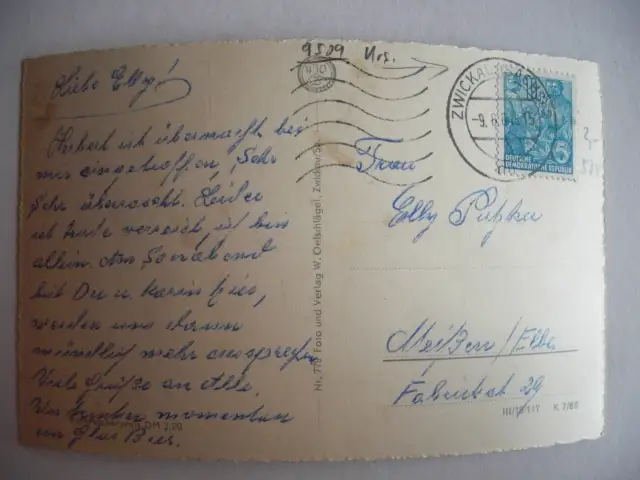 9509 Krs.
Liebe Elly!
Herbert ist übernacht bei
mir eingetroffen, Sehr
Sehr überrascht. Heider
ist verreist, ich bin
allein. Am Sonnabend
bist Du u. Karin hier,
werden uns dann
mündlich mehr aussprechen
Viele Grüße an Alle.
Wir momentan
ein Glas Bier.
DM 0,20
Nr. 778 Foto und Verlag W. Oelschlägel, Zwickau/Sa.
ZWICKAU
-9.6.
DEUTSCHE
DEMOKRATISCHE REPUBLIK
5
2,-
Frau
Elly
Meißen/Elbe
29
III/18/117 K 7/60